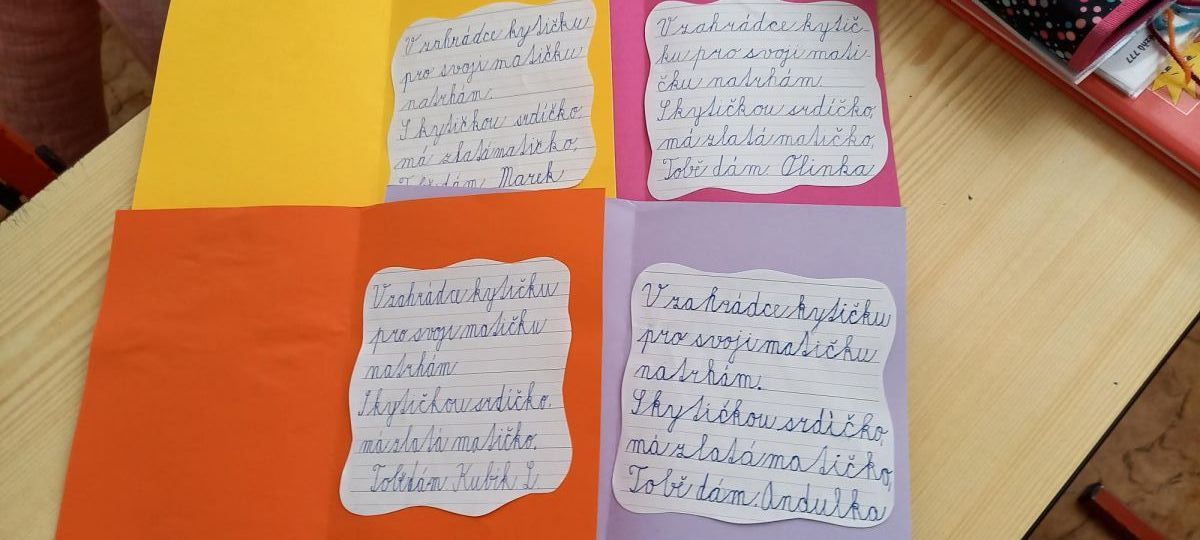 V zahrádce kytičku
pro svoji matičku
natrhám.
S kytičkou srdíčko,
má zlatá matičko,
Tobě dám Marek
V zahrádce kytič-
ku pro svoji mati-
čku natrhám.
S kytičkou srdíčko,
má zlatá matičko,
Tobě dám Olinka
V zahrádce kytičku
pro svoji matičku
natrhám
S kytičkou srdíčko,
má zlatá matičko,
Tobě dám Kubík L.
V zahrádce kytičku
pro svoji matičku
natrhám.
S kytičkou srdíčko,
má zlatá matičko,
Tobě dám. Andulka